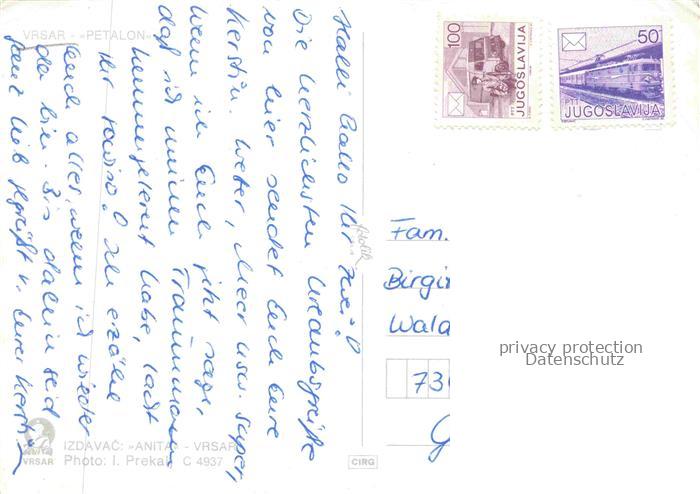 VRSAR - »PETALON«
Halli hallo Ihr zwei!
Die herzlichsten Urlaubsgrüße
von hier sendet Euch Eure
Kerstin. Wetter, Meer usw. super,
wenn ich Euch jetzt sage,
daß ich meinen Traummann
kennengelernt habe, lacht
Ihr sowieso! Ich erzähle
Euch alles, wenn ich wieder
da bin. Bis dahin seid
ganz lieb gegrüßt v. Eurer Kerstin
100
PTT JUGOSLAVIJA
50
PTT
JUGOSLAVIJA
Fam.
Birgi
Wala
73
privacy protection
Datenschutz
VRSAR
IZDAVAČ: »ANITA« - VRSAR
Photo: I. Prekalj C 4937
CIRG